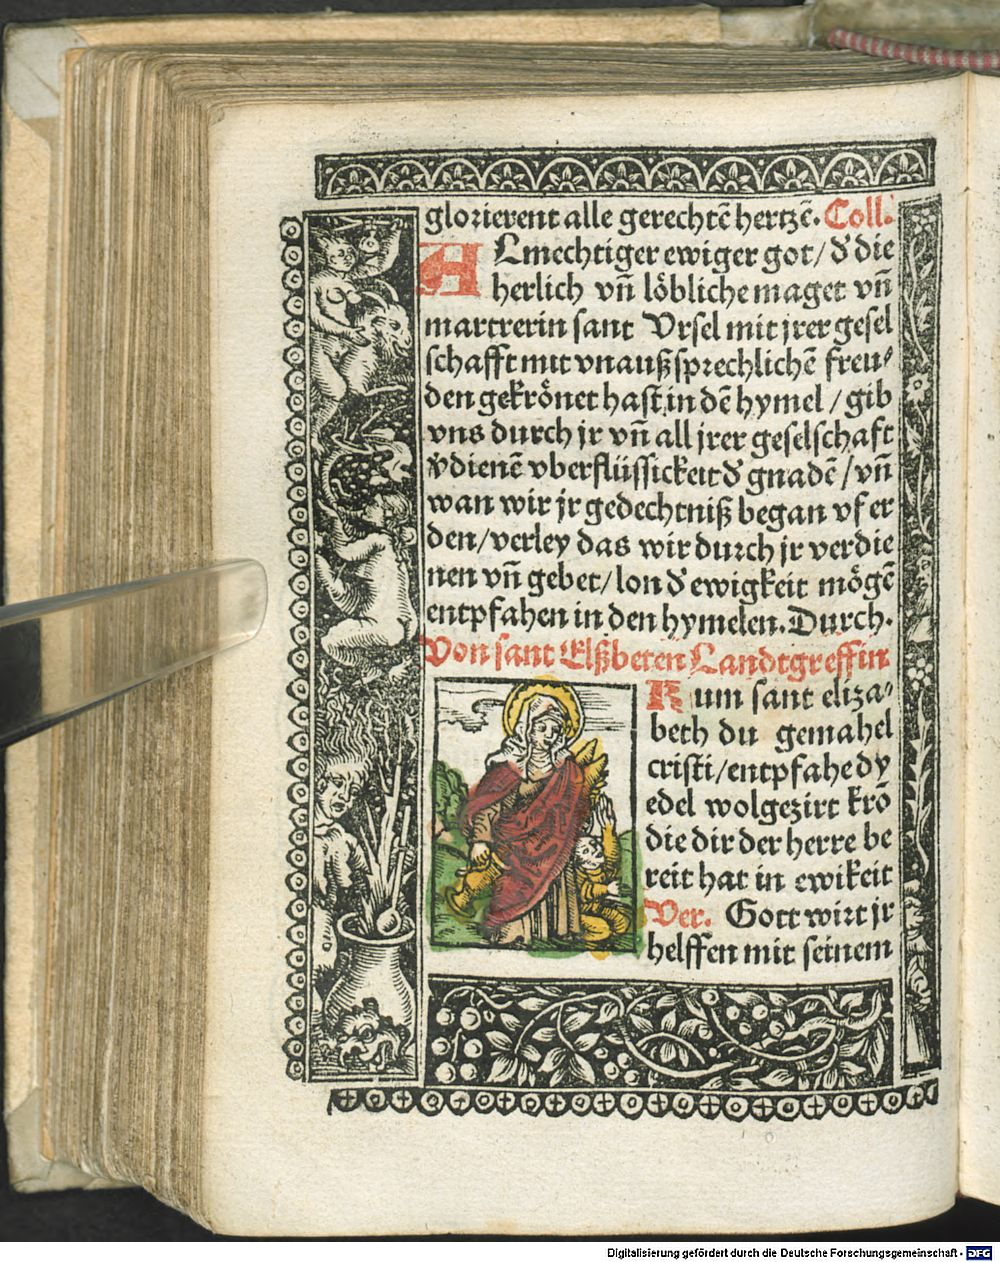 glorierent alle gerechtē hertzē. Coll.
ALmechtiger ewiger got/ d̕ die
herlich vn̄ löbliche maget vn̄
martrerin sant Vrsel mit jrer gesel
schafft mit vnaußsprechlichē freu⸗
den gekrönet hast in dē hymel / gib
vns durch jr vn̄ all jrer geselschaft
v̕dienē vberflüssickeit d̕ gnadē / vn̄
wan wir jr gedechtniß began vf er
den/verley das wir durch jr verdie
nen vn̄ gebet/lon d̕ ewigkeit mögē
entpfahen in den hymelen. Durch.
Von sant Elßbeten Landtgreffin
Kum sant eliza⸗
beth du gemahel
cristi/entpfahe dy
edel wolgezirt krō
die dir der herre be
reit hat in ewikeit
Ver. Gott wirt jr
helffen mit seinem
Digitalisierung gefördert durch die Deutsche Forschungsgemeinschaft - DFG